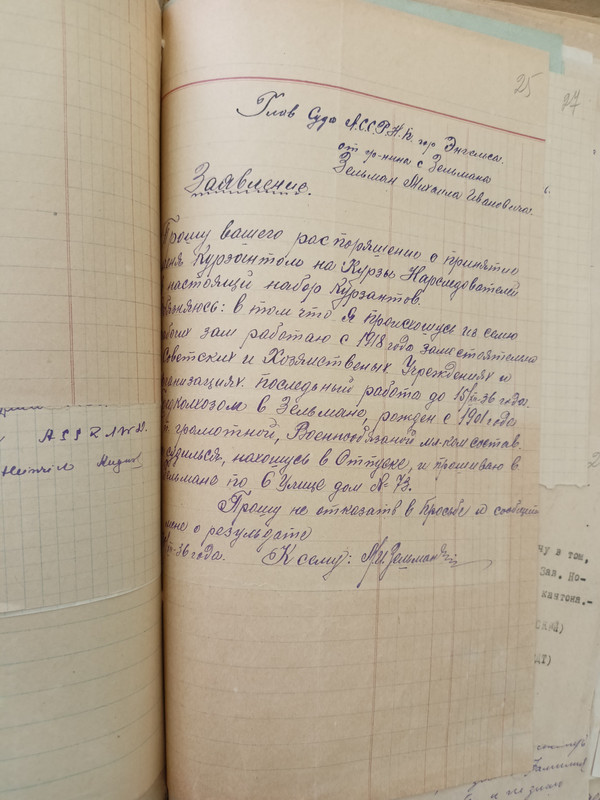 25
27
Глов Суда А.С.С.Р.Н.П. гор Энгельса.
от гр-нина с Зельмана
Зельман Михаила Ивановича.
Заявление.
Прошу вашего распоряшение о принятие
меня Курзантом на Курзы Нарследователей
настоящий набор Курзантов.
: в том что я происхошусь из семю
зам работаю с 1918 года
Советских и Хозямственых Учреждениях и
организациях последьный работа до 15/ -36 года.
колхозом в Зельмано, рожден с 1901 года
грамотной, Военнообязаной мл. ком состав.
судился, нахошусь в Оттуске, и прошиваю в
Зельмано по 6 Улице дом № 73.
Прошу не отказать в просьбе и сообщить
мене о результате
-36 года. К сему: М.И.Зельман
Heinrich
ну в том,
Зав. Но-
кантона.-
ДТ)